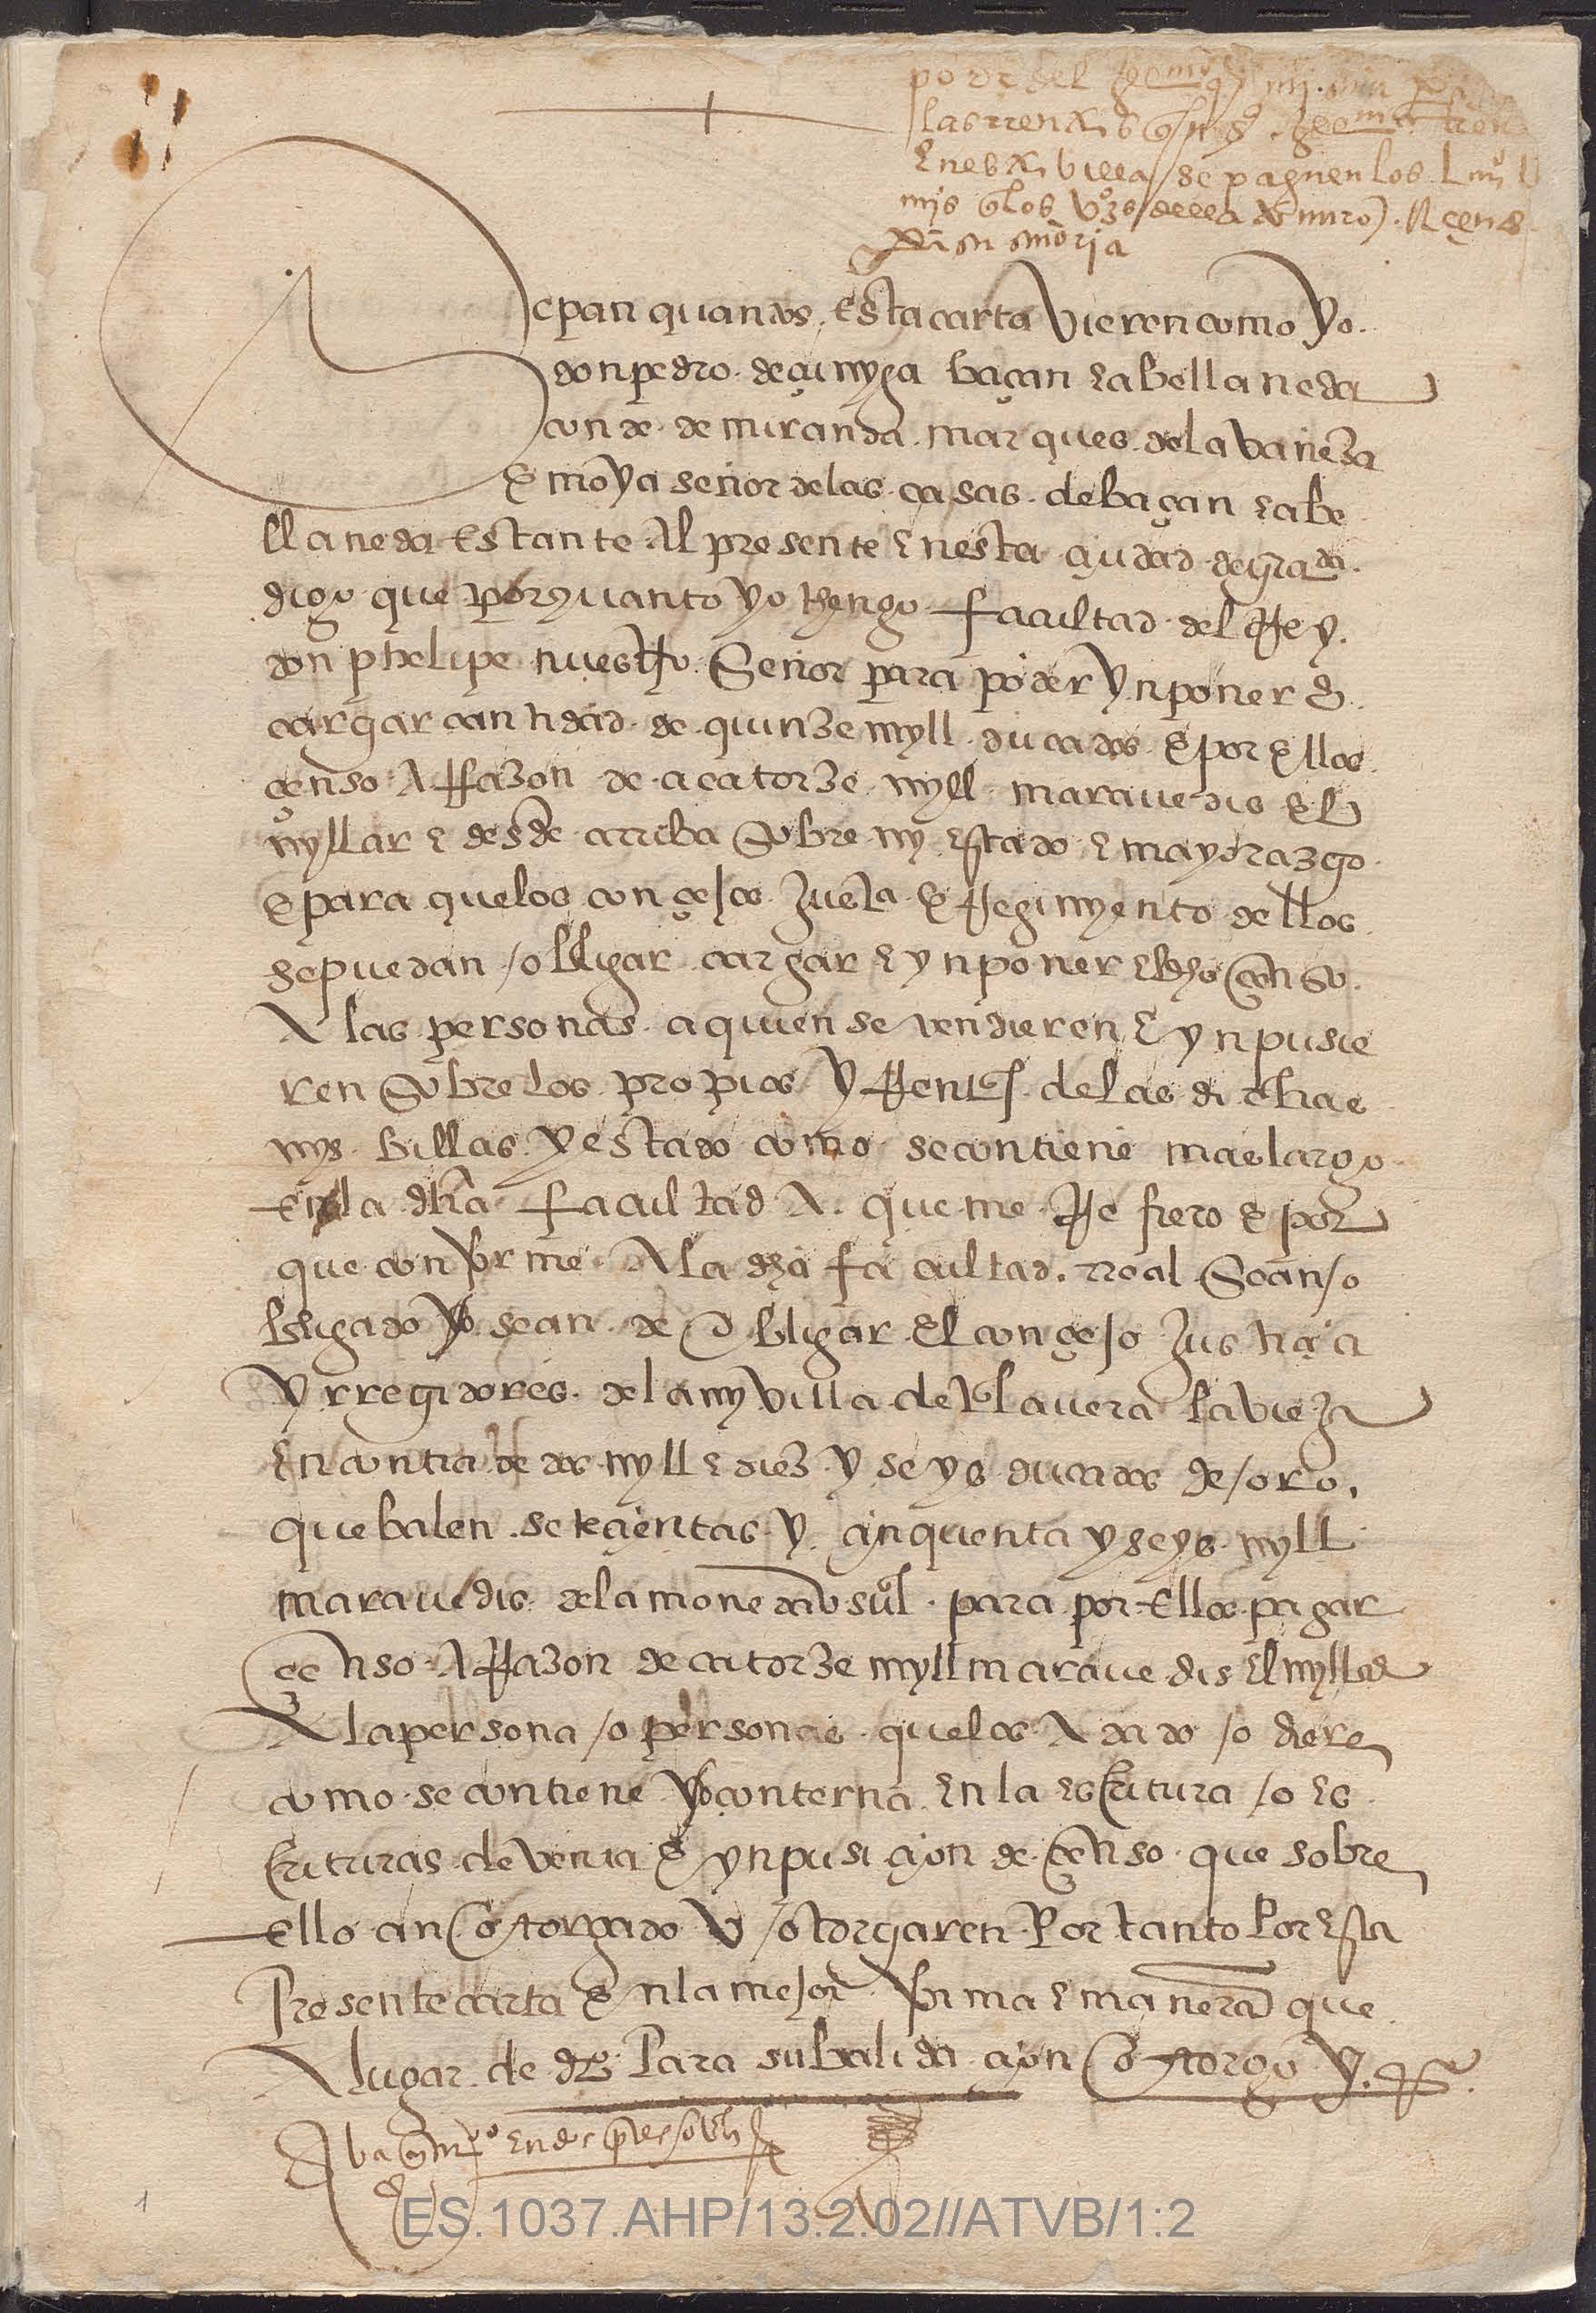 poder del
las rrentas
en esta villa / se paguen los
mjs
Sepan quantos esta carta vieren como yo
don pedro de çunyga baçan e abellaneda
conde de miranda marques de la vañeza
e moya señor de las casas de baçan e abe
llaneda estante al presente en esta çiudad de grada
digo que por quanto yo thengo facultad del rrey
don phelipe nuestro señor para poder ynponer e
cargar cantidad de quinze myll ducados e por ellos
çenso a rrazon de a catorze myll maravedis el
myllar e desde arriba sobre my estado e mayorazgo
e para que los conçejos justa e rregimyento dellos
se puedan / obligar cargar e ynponer el dho çenso
a las personas a quien se vendieren e ynpusie
ren sobre los propios y rrentas de las dichas
mys billas y estado como se contiene mas largo
en la dha facultad a que me rrefiero e por
que conforme a la dha facultad rreal se an / o
bligado yo se an de obligar el conçejo justiçia
y rregidores de la my villa de talavera la vieja
en contia de dos myll e diez y seys ducados de / oro
que balen seteçientas y çinquenta y seys myll
maravedis de la moneda usual para por ellos pagar
çenso a rrazon de catorze myll maravedis el myllar
a la persona / o personas que los a dado / o diere
como se contiene y o conterna en la escritura / o es
crituras de venta e ynpusiçion de çenso que sobre
ello an otorgado u / otorgaren por tanto por esta
presente carta e en la mejor forma e manera que
a lugar de dro para su balidaçion otorgo y
1
ES.1037.AHP/13.2.02//ATVB/1:2